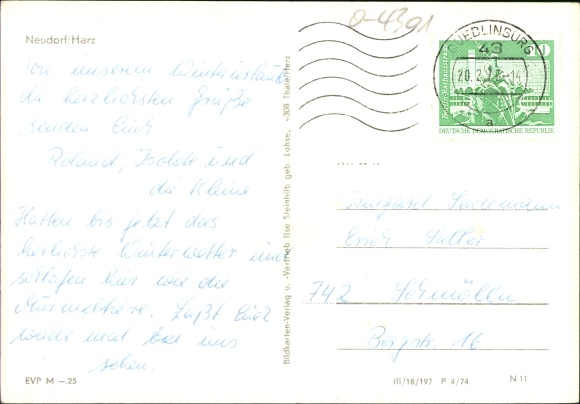 Neudorf/Harz
0-4391
Von unserem Winterurlaub
die herzlichsten Grüße
senden Euch
Roland, Isolde und
die Kleine
Hatten bis jetzt das
herrlichste Winterwetter und
schlafen hier wie die
Murmeltiere. Laßt Euch
wieder mal bei uns
sehen.
EVP M –.25
Bildkarten-Verlag u. -Vertrieb Ilse Steinhilb geb. Lohse, 4308 Thale/Harz
QUEDLINBURG
43
20.2.
-14
a
DEUTSCHE DEMOKRATISCHE REPUBLIK
Irmgard
Erich Sattler
742 Schmölln
Bergstr. 16
III/18/197 P 4/74 N 11